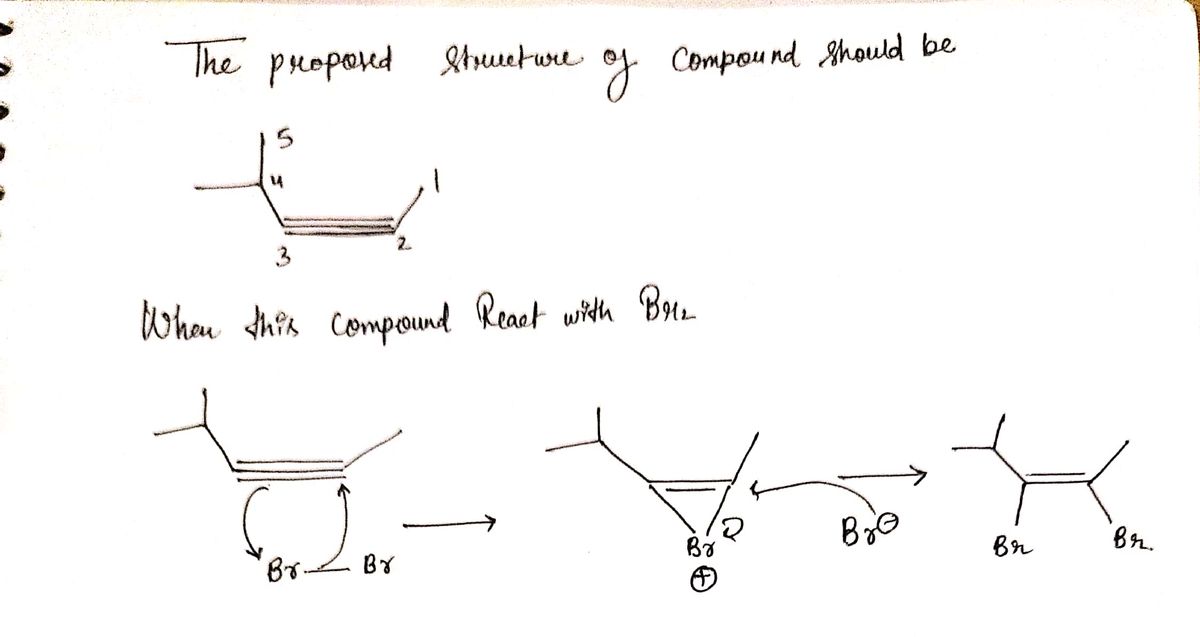 The proposed structure of compound should be
5
4
1
3
2
When this compound React with Br2
Br Br
Br
⊕
Br⊖
Br
Br.